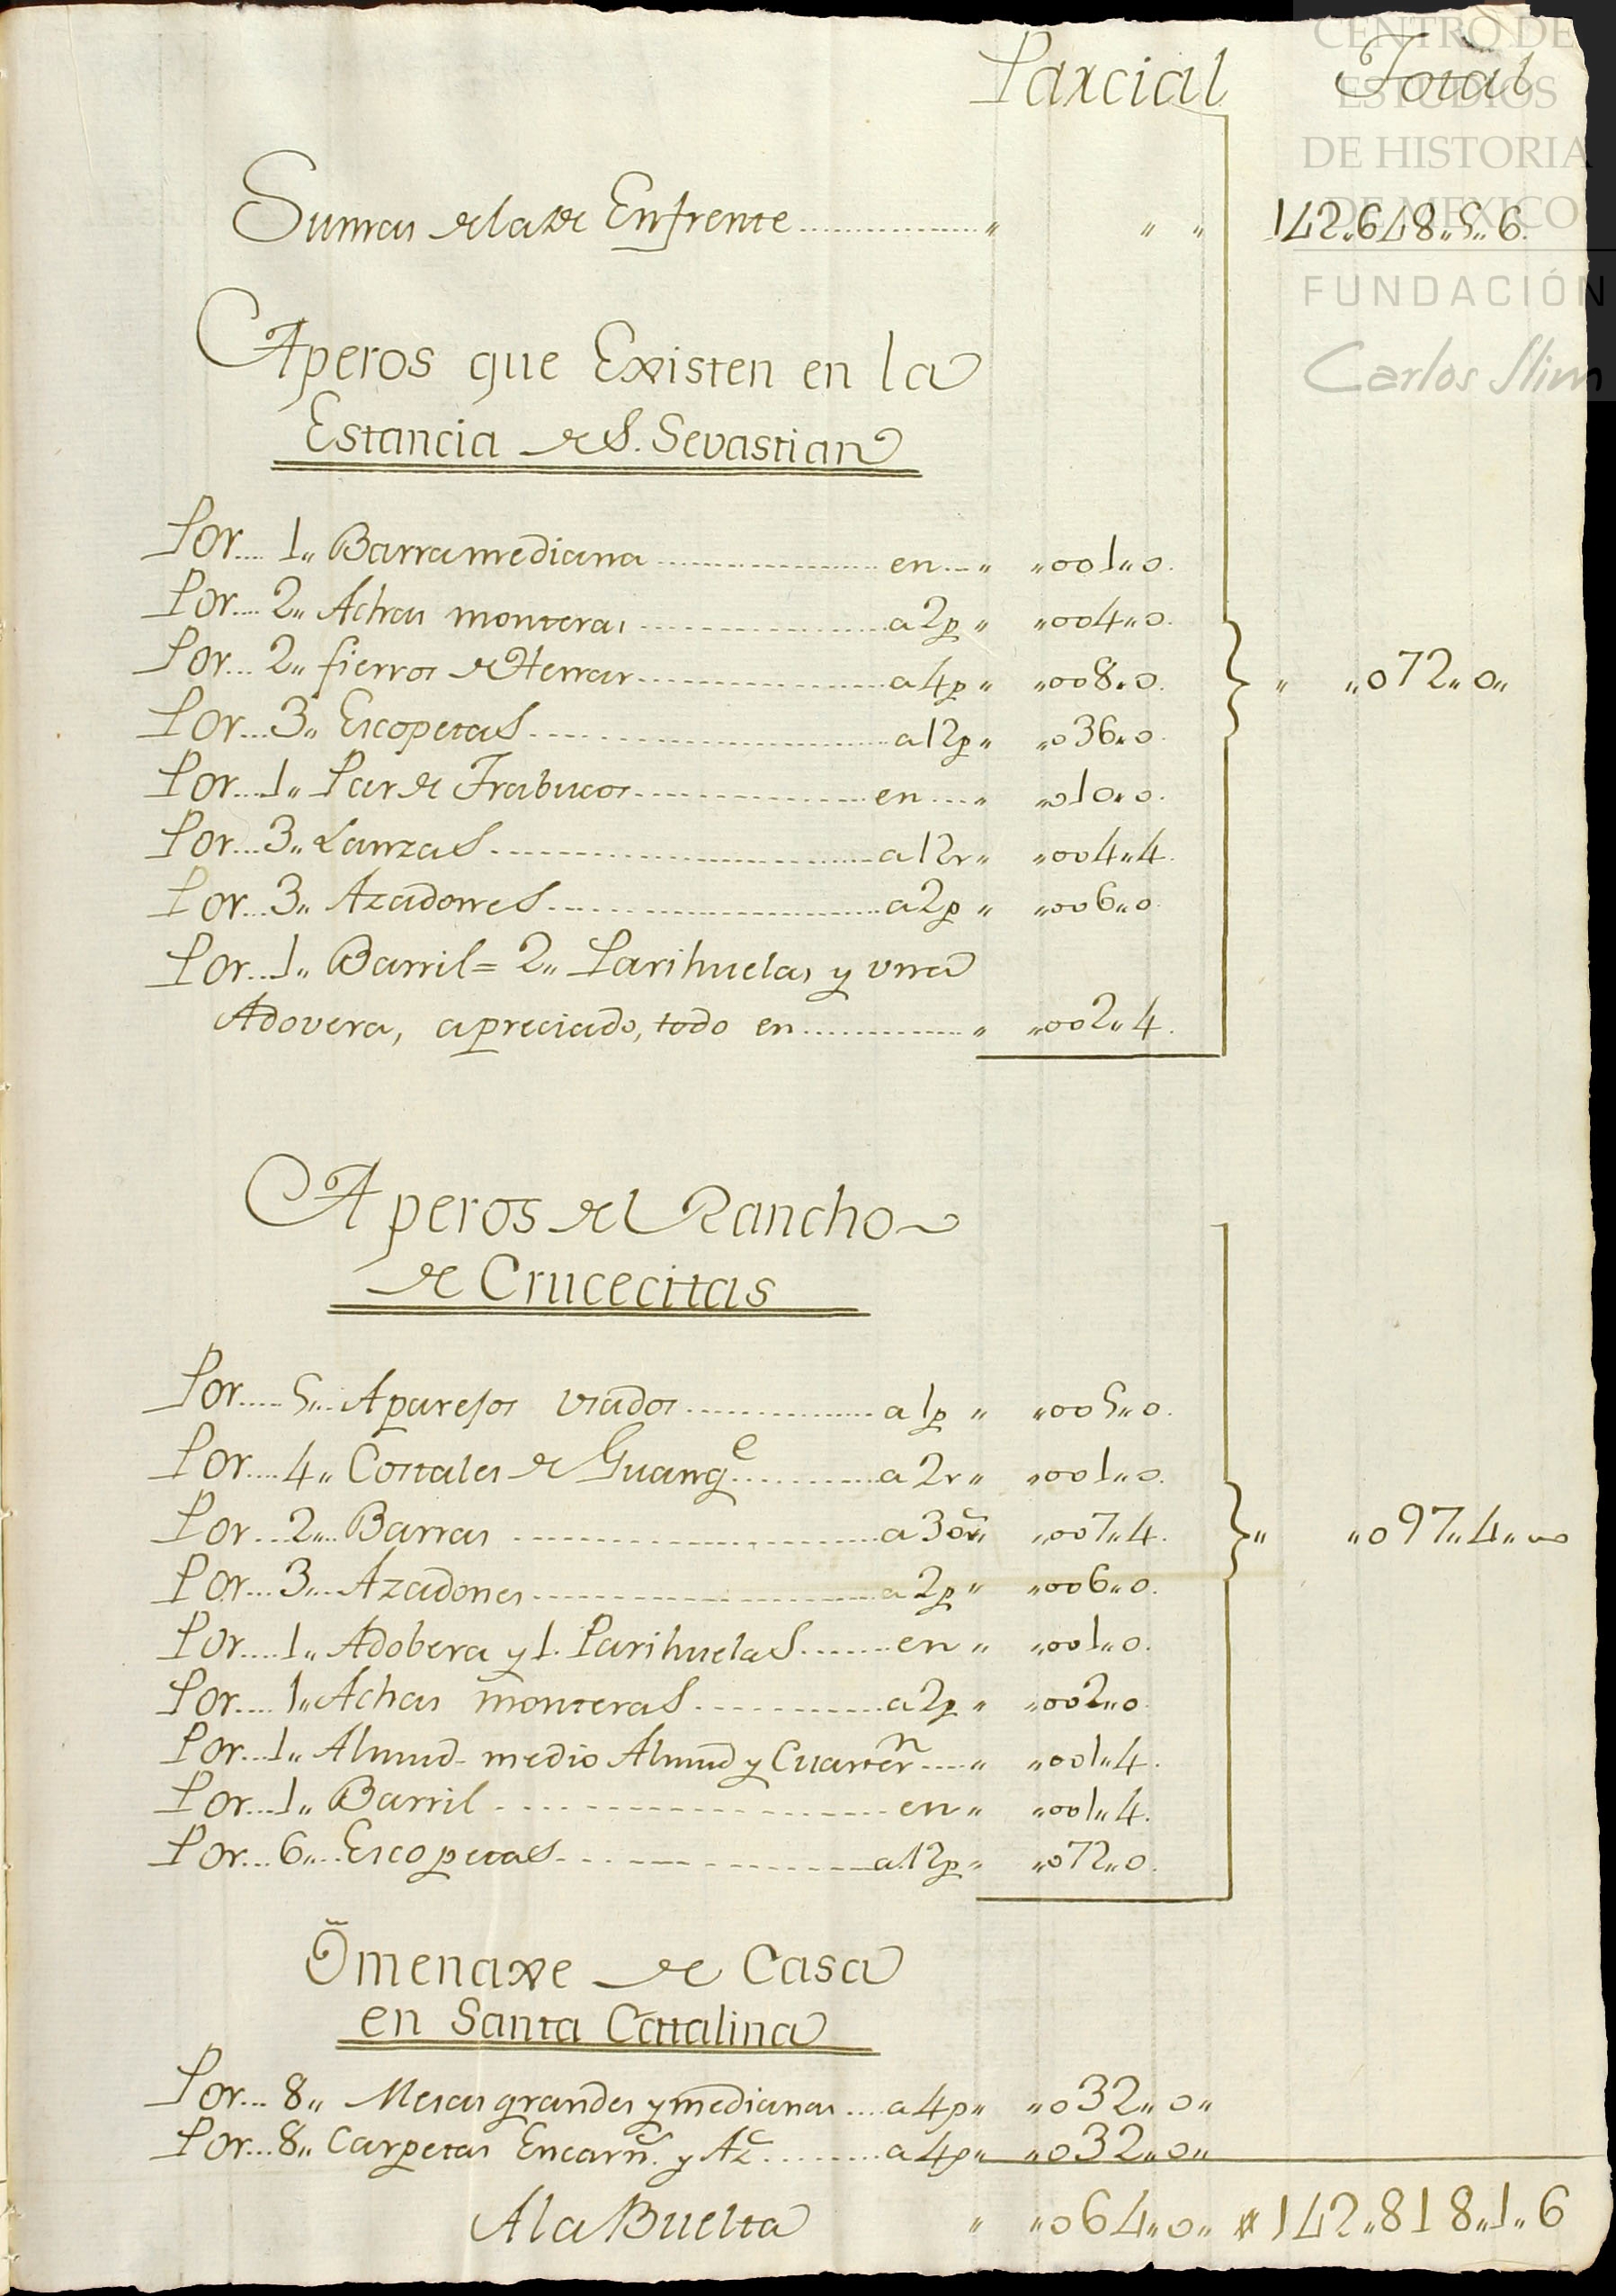 Parcial Total
Sumas de la de Enfrente .......... „ „ „ 142„648„5„6.
Aperos que Existen en la
Estancia de S. Sevastian
Por.... 1„ Barra mediana .......... en.... „ „001„0.
Por.... 2„ Achas monteras .......... a 2p „ „004„0.
Por.... 2„ fierros de Herrar .......... a 4p „ „008„0. „ „072„0„
Por.... 3„ Escopetas .......... a 12p „ „036„0.
Por.... 1„ Par de Trabucos .......... en.... „ „010„0.
Por.... 3„ Lanzas .......... a 12r „ „004„4.
Por.... 3„ Azadones .......... a 2p „ „006„0.
Por.... 1„ Barril = 2„ Parihuelas y una
Adovera, apreciado, todo en .......... „ „002„4.
Aperos del Rancho
de Crucecitas
Por.... 5„ Aparejos usados .......... a 1p „ „005„0.
Por.... 4„ Costales de Guangᵉ .......... a 2r „ „001„0.
Por.... 2„ Barras .......... a 30r̃ „ „007„4. „ „097„4„
Por.... 3„ Azadones .......... a 2p „ „006„0.
Por.... 1„ Adobera y 1. Parihuelas ....... en „ „001„0.
Por.... 1„ Achas monteras .......... a 2p „ „002„0.
Por.... 1„ Almud medio Almud y Cuarterⁿ .... „ „001„4.
Por.... 1„ Barril .......... en „ „001„4.
Por.... 6„ Escopetas .......... a 12p „ „072„0.
Õmenaxe de Casa
en Santa Catalina
Por.... 8„ Mesas grandes y medianas .... a 4p „ „032„0„
Por.... 8„ Carpetas Encarñ. y Azᶜ ........ a 4p „ „032„0„
A la Buelta „ „064„0„ 142„818„1„6
CENTRO DE
ESTUDIOS
DE HISTORIA
DE MÉXICO
FUNDACIÓN
Carlos Slim